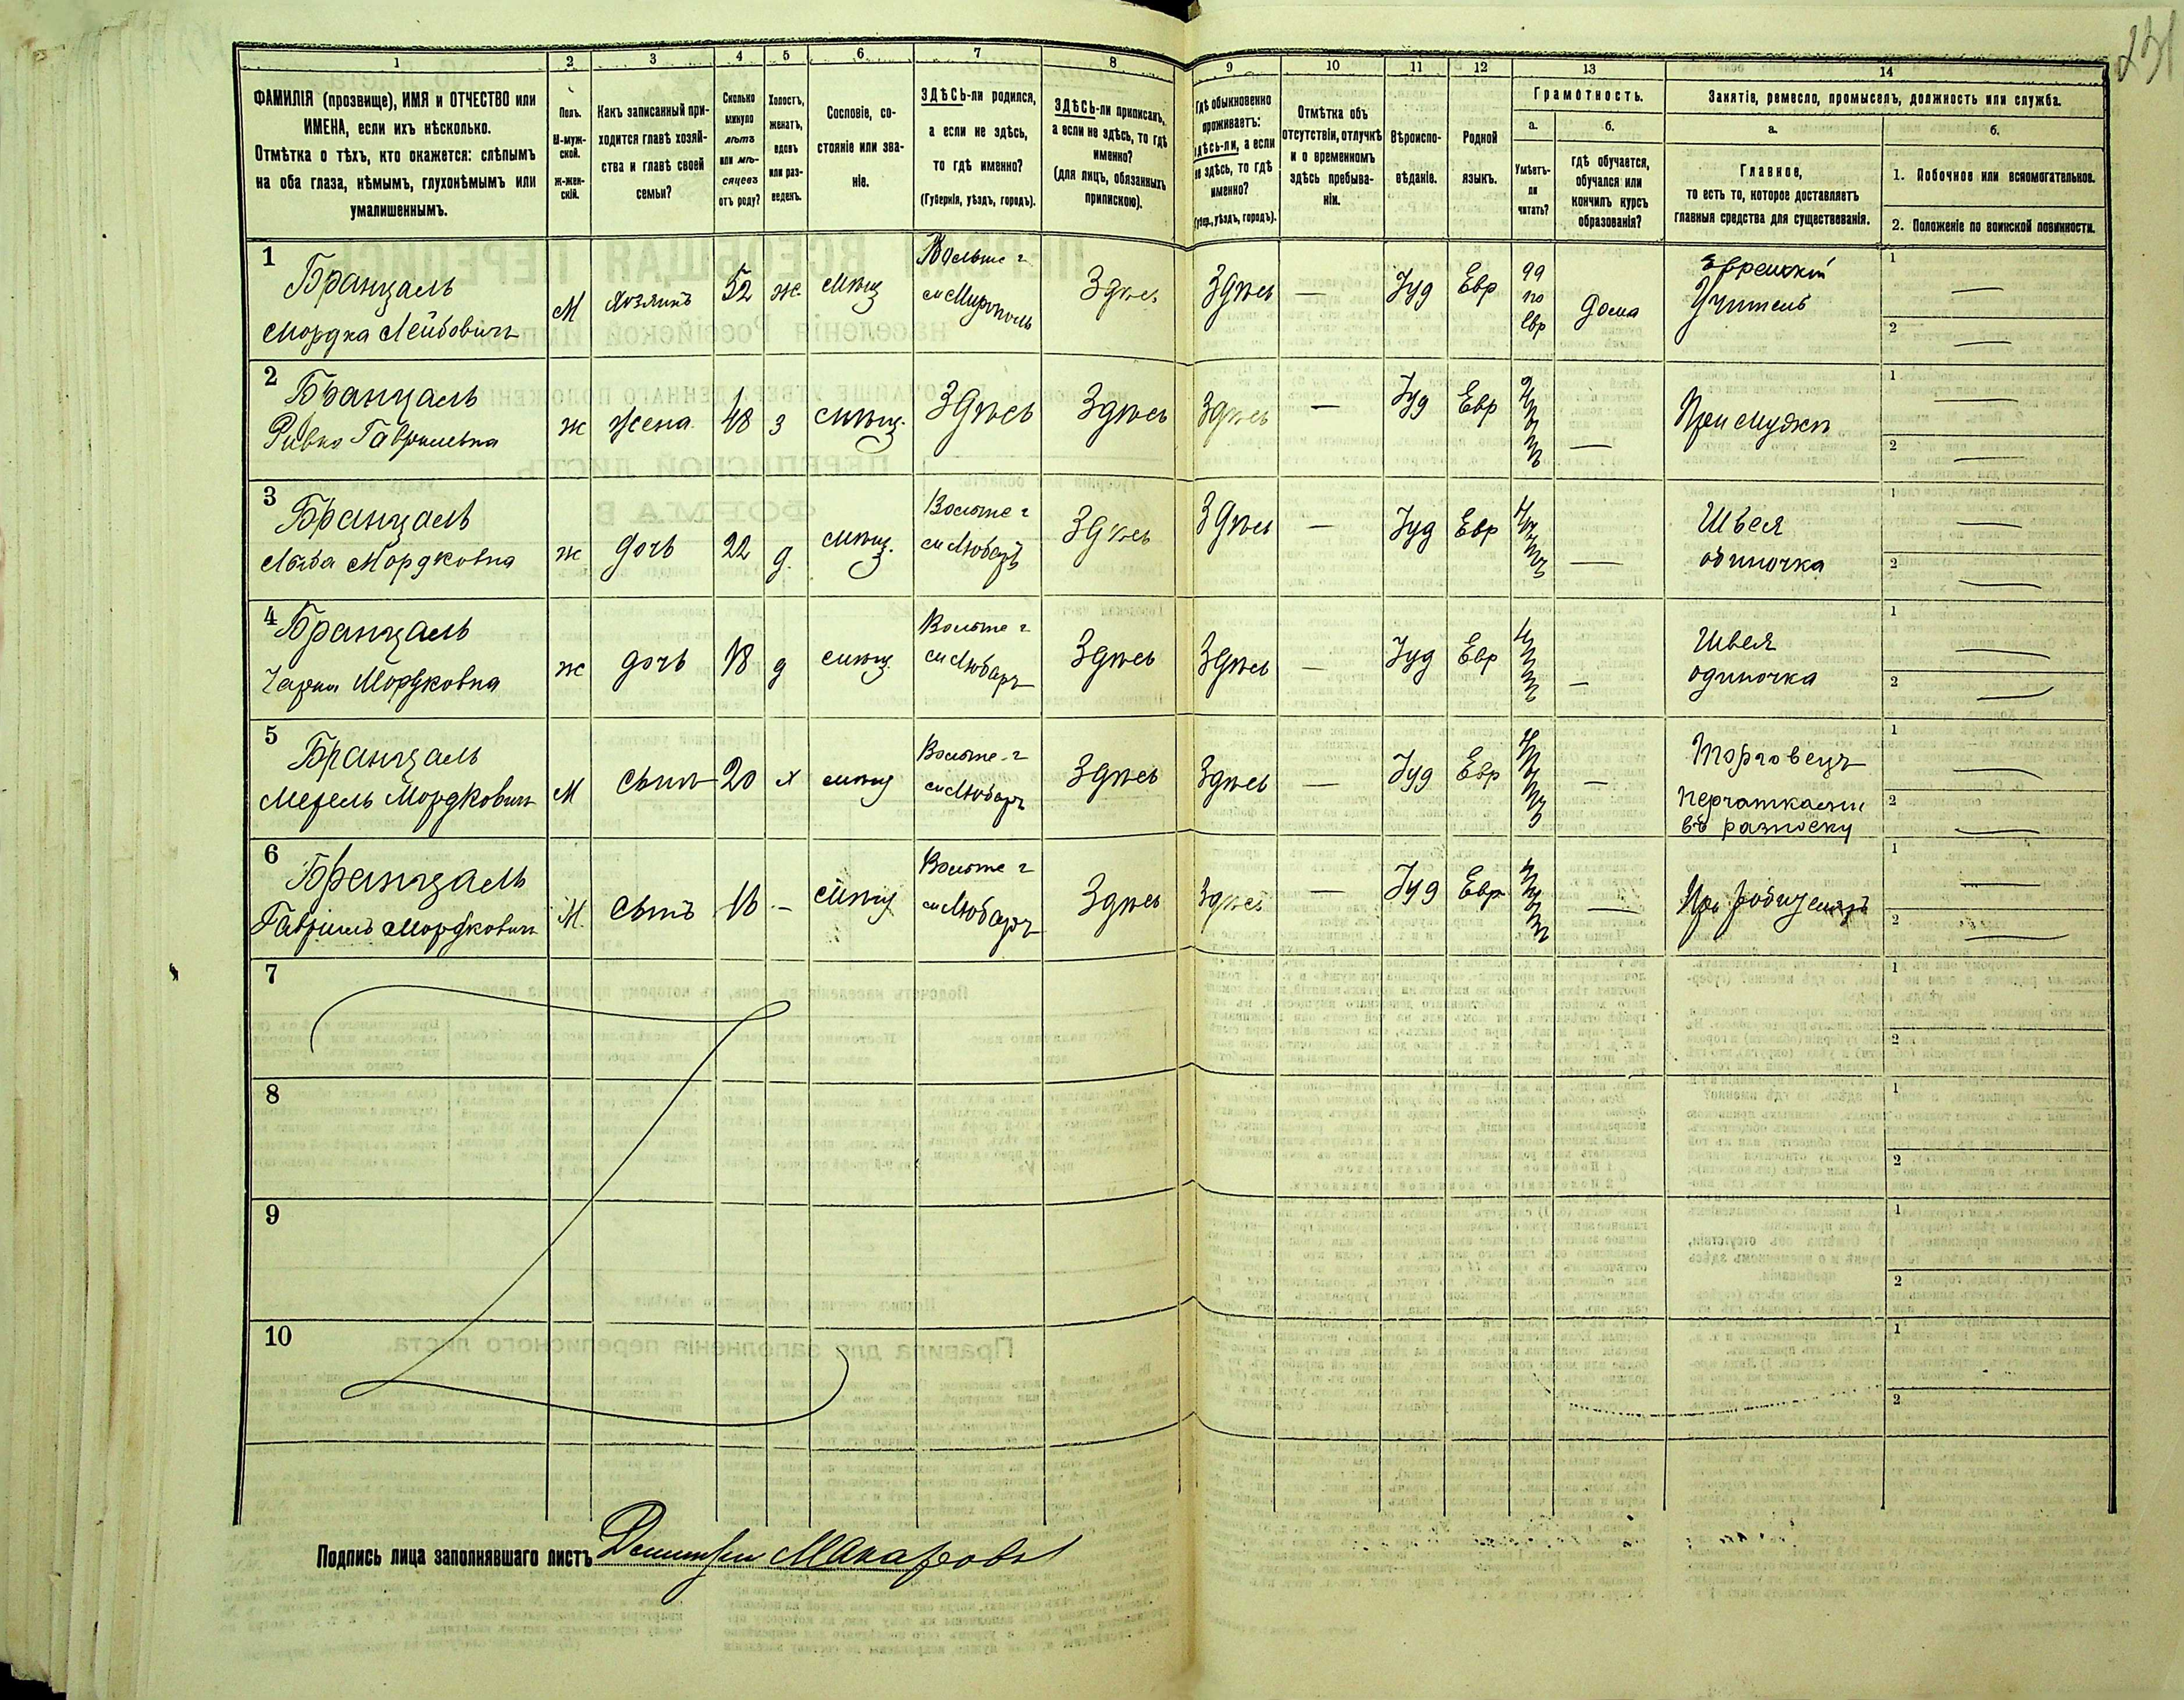 231
1 2 3 4 5 6 7 8 9 10 11 12 13 14
ФАМИЛІЯ (прозвище), ИМЯ и ОТЧЕСТВО или
ИМЕНА, если ихъ нѣсколько.
Отмѣтка о тѣхъ, кто окажется: слѣпымъ
на оба глаза, нѣмымъ, глухонѣмымъ или
умалишеннымъ.
Полъ.
М-муж-
ской.
ж-жен-
скій.
Какъ записанный при-
ходится главѣ хозяй-
ства и главѣ своей
семьи?
Сколько
минуло
лѣтъ
или мѣ-
сяцевъ
отъ роду?
Холостъ,
женатъ,
вдовъ
или раз-
веденъ.
Сословіе, со-
стояніе или зва-
ніе.
ЗДѢСЬ-ли родился,
а если не здѣсь,
то гдѣ именно?
(Губернія, уѣздъ, городъ).
ЗДѢСЬ-ли приписанъ,
а если не здѣсь, то гдѣ
именно?
(для лицъ, обязанныхъ
припискою).
Гдѣ обыкновенно
проживаетъ:
здѣсь-ли, а если
не здѣсь, то гдѣ
именно?
(Губер., уѣздъ, городъ).
Отмѣтка объ
отсутствіи, отлучкѣ
и о временномъ
здѣсь пребыва-
ніи.
Вѣроиспо-
вѣданіе.
Родной
языкъ.
Грамотность.
а.
Умѣетъ-
ли
читать?
б.
гдѣ обучается,
обучался или
кончилъ курсъ
образованія?
Занятіе, ремесло, промыселъ, должность или служба.
а.
Главное,
то есть то, которое доставляетъ
главныя средства для существованія.
б.
1. Побочное или вспомогательное.
2. Положеніе по воинской повинности.
1
Бранзаль
Мордка Лейбовичъ
М
Хозяинъ
52
ж.
мѣщ
Волын г
м Мирополь
Здѣсь
Здѣсь
—
Іуд
Евр
да
по
евр
дома
Еврейскій
Учитель
1 —
2 —
2
Бранзаль
Ривка Гавриловна
ж
жена
48
з
мѣщ.
Здѣсь
Здѣсь
Здѣсь
—
Іуд
Евр
нѣтъ
—
При мужѣ
1 —
2 —
3
Бранзаль
Мордковна
ж
дочь
22
д.
мѣщ.
Волын г
м Любаръ
Здѣсь
Здѣсь
—
Іуд
Евр
нѣтъ
—
Швея
одиночка
1 —
2 —
4
Бранзаль
Чарна Мордковна
ж
дочь
18
д
мѣщ
Волын г
м Любаръ
Здѣсь
Здѣсь
—
Іуд
Евр
нѣтъ
—
Швея
одиночка
1 —
2 —
5
Бранзаль
Мордковичъ
М
сынъ
20
х
мѣщ
Волын г
м Любаръ
Здѣсь
Здѣсь
—
Іуд
Евр
нѣтъ
—
Торговецъ
перчатками
въ разноску
1 —
2 —
6
Бранзаль
Гавріилъ Мордковичъ
М
сынъ
—
мѣщ
Волын г
м Любаръ
Здѣсь
Здѣсь
—
Іуд
Евр
нѣтъ
—
При родителяхъ
1 —
2 —
7
1
2
8
1
2
9
1
2
10
1
2
Подпись лица заполнявшаго листъ Дмитрій Макаровъ